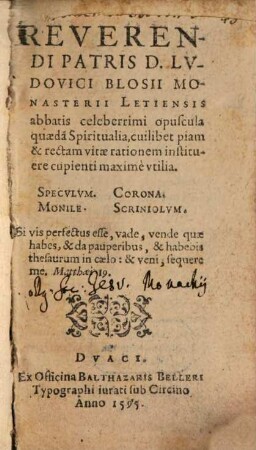 REVEREN-
DI PATRIS D. LV-
DOVICI BLOSII MO-
NASTERII LETIENSIS
abbatis celeberrimi opuscula
quædā Spiritualia, cuilibet piam
& rectam vitæ rationem institue-
ere cupienti maximè vtilia.
SPECVLVM. CORONA.
MONILE. SCRINIOLVM.
Si vis perfectus esse, vade, vende quæ
habes, & da pauperibus, & habebis
thesaurum in cælo: & veni, sequere
me. Matthæi 19.
Soc: Jesv. Monachij
DVACI.
Ex Officina BALTHAZARIS BELLERI
Typographi iurati sub Circino
Anno